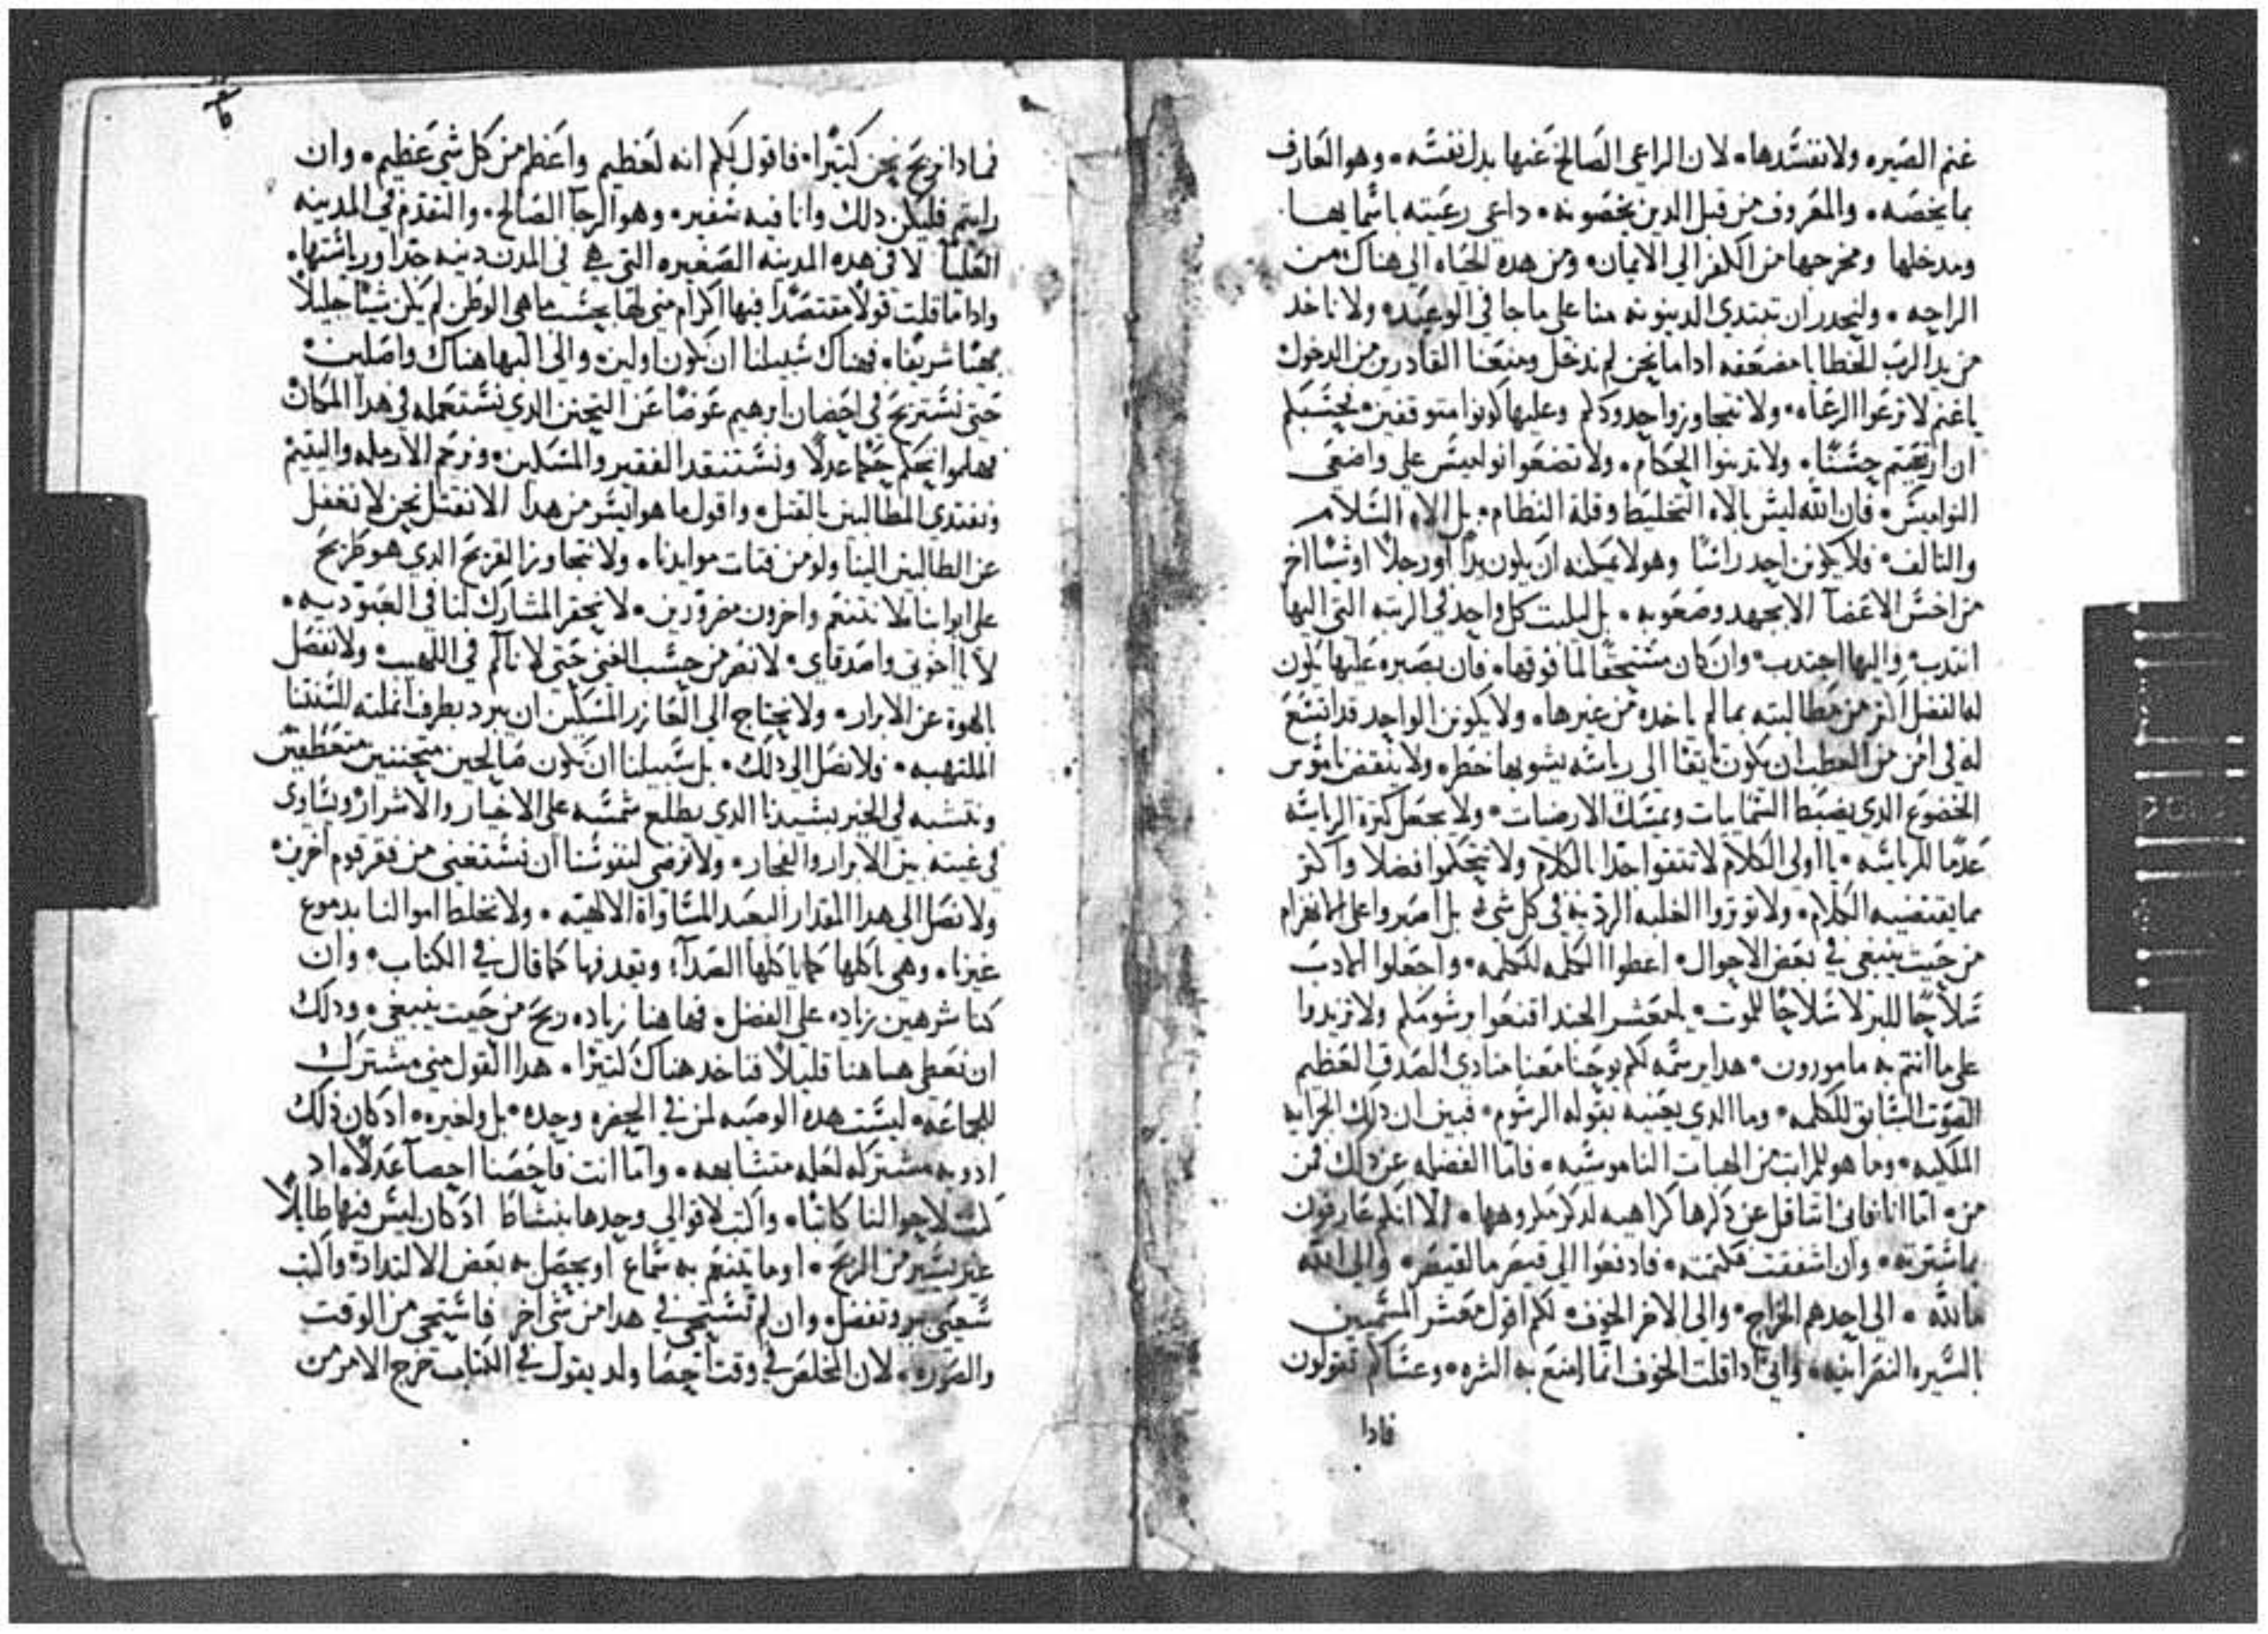 غنم الصيره ولا نفسدها٠ لان الراعي الصالح عنها بدل نفسه٠ وهو العارف
بما يخصه٠ والمعروف من قبل الدين يخصونه٠ داعي رعيته باسمايها
ومدخلها ومخرجها من الكفر الي الايمان٠ ومن هده الحياه الي هناك من
الراحه٠ وليجدر ان تبتدي الدينونه منا علي ما جا في الوعيد٠ ولا ناخد
من يد الرب الخطايا مضعفه ادا ما نحن لم ندخل ومنعنا القادرين من الدخول
يا غنم لا ترعوا الرعاه٠ ولا تتجاوزوا حدودكم وعليها كونوا متوقفين٠ يحسبكم
ان ارتعيتم حسنا٠ ولا تدينوا الحكام٠ ولا تضعوا نواميس علي واضعي
النواميس٠ فان الله ليس بالاه التخليط وقلة النظام٠ بل الاه السلام
والتالف٠ فلا يكونن احد راسا وهو لا يمكنه ان يكون يدا او رجلا او شيا اخر
من اخس الاعضا الا بجهد وصعوبه٠ بل ليلبت كل واحد في الرتبه التي اليها
انتدب واليها اجتدب٠ وان كان مستحقا لما فوقها٠ فان بصبره عليها يكون
له الفضل اكتر من مطالبته بما لم ياخده من غيرها٠ ولا يكونن الواحد قد اتسع
له في امن من العطب ان يكون تايقا الي رياسه يشوبها خطر٠ ولا ينتقض ناموس
الخضوع الدي يضبط السمايات ويمسك الارضيات٠ ولا يجعل كترة الرياسه
عدما للرياسه٠ يا اولي الكلام لا تتقوا جدا بالكلام ولا تتحكموا فضلا واكتر
مما يقتضيه الكلام٠ ولا توتروا الغلبه الرديه في كل شي٠ بل اصبروا علي الانغرام
من حيت ينبغي في بعض الاحوال٠ اعطوا الكلمه للكلمه٠ واجعلوا الادب
سلاحا للبر لا سلاحا للموت٠ يا معشر الجند اقنعوا برسومكم ولا تزيدوا
علي ما انتم به مامورون٠ هدا يرسمه لكم يوحنا معنا منادي الصدق العظيم
الصوت السابق للكلمه٠ وما الدي يعنيه بقوله الرسوم٠ فبين ان دلك الجرايه
الملكيه٠ وما هو للمراتب من الهبات الناموسيه٠ فاما الفضله عن دلك فمن
من٠ اما انا فاني اتتاقل عن دكرها كراهيه لدكر مكروهها٠ الا انكم عارفون
بما سترته٠ وان اشفقت فكتمته٠ فادفعوا الي قيصر ما لقيصر٠ والي الله
ما لله٠ الي احدهم الخراج٠ والي الاخر الخوف٠ لكم اقول معشر المسميين
بالسيره النصرانيه٠ واني ادا قلت الخوف انما امنع به الشره٠ وعساكم تقولون
فادا
فمادا نربح نحن كتيرا٠ فاقول لكم انه لعظيم واعظم من كل شي عظيم٠ وان
رايتم فليكن دلك وانا فيه سفير٠ وهو الرجا الصالح٠ والتقدم في المدينه
العليا لا في هده المدينه الصغيره التي هي في المدن دنيه جدا ورياستها٠
وادا ما قلت قولا مقتصدا فيها اكرام مني لها بحسب ما هي الوطن لم يكن شيا جليلا
بهيا شريفا٠ فهناك سبيلنا ان نكون اولين٠ والي البها هناك واصلين٠
حتي نستريح في احضان ابرهيم عوضا عن التحنن الدي نستعمله في هدا المكان
فهلموا نحكم حكما عدلا ونستنقد الفقير والمسكين٠ ونرحم الارمله واليتيم
ونفتدي المطالبين بالقتل٠ واقول ما هو ايسر من هدا الا نقتل نحن لا نغفل
عن الطالبين الينا ولو من فتات موايدنا٠ ولا نتجاوز المقرح الدي هو طريح
علي ابوابنا ولا نتنعم واخرون مضرورين٠ لا نحقر المشارك لنا في العبوديه٠
لا يا اخوتي واصدقاي٠ لا نصر من حسب الغني حتي لا نالم في اللهيب٠ ولا نفصل
بالهوة عن الابرار٠ ولا نحتاج الي العازر المسكين ان يبرد بطرف انملته السنتنا
الملتهبه٠ ولا نصل الي دلك٠ بل سبيلنا ان نكون صالحين متحننين متعطفين
ونتشبه في الخير بسيدنا الدي يطلع شمسه علي الاخيار والاشرار ويساوي
في غيته بين الابرار والفجار٠ ولا نرضي لنفوسنا ان نستغني من فقر قوم اخرين٠
ولا نصل الي هدا المقدار البعيد المساواة الالهيه٠ ولا نخلط اموالنا بدموع
غيرنا٠ وهي ياكلها كما ياكلها الصدا٠ ونقدفها كما قال في الكتاب٠ وان
كنا شرهين زياده علي الفضل٠ فهاهنا زياده ربح من حيت ينبغي٠ ودلك
ان نعطي هاهنا قليلا فناخد هناك كتيرا٠ هدا القول مني مشترك
للجماعه٠ ليست هده الوصيه لمن في الحضره وحده٠ بل ولغيره٠ اد كان دلك
ادويه مشتركه لعله متشابهه٠ واما انت فاحصنا احصا عدلا٠ اد
لست لاحوالنا كاتبا٠ واكتب لاقوالي وحدها بنشاط اد كان ليس فيها طايلا
غير يسير من الربح٠ او ما يتنعم به سماع او يحصل به بعض الالتداد٠ واكتب
شعبي ببر وتفضل٠ وان لم تستحي في هدا من شي اخر فاستحي من الوقت
والصوره٠ لان المخلص في وقت احصا ولد يقول في الكتاب خرج الامر من